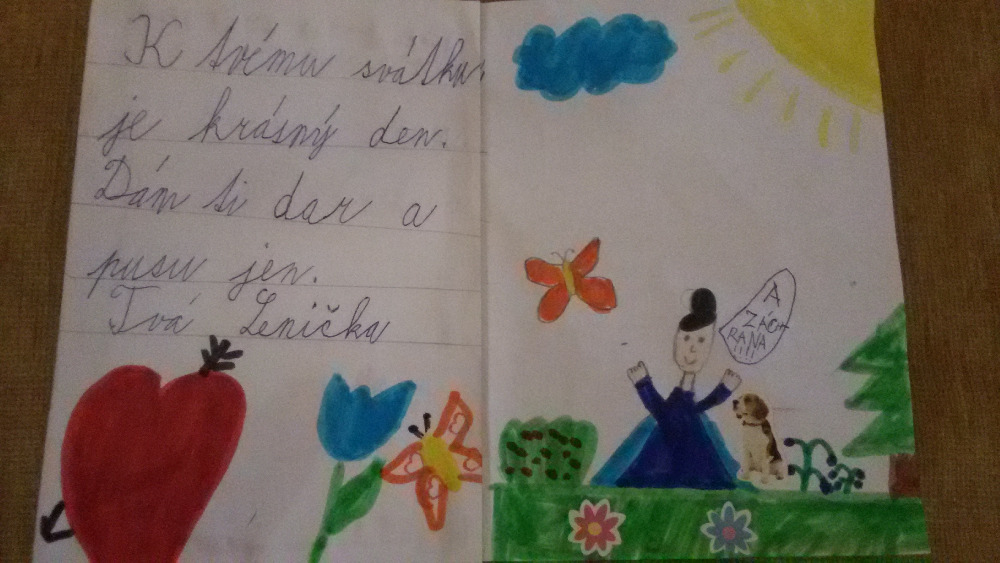 K tvému svátku
je krásný den.
Dám ti dar a
pusu jen.
Tvá Lenička
A
ZÁCH
RANA
!!!!